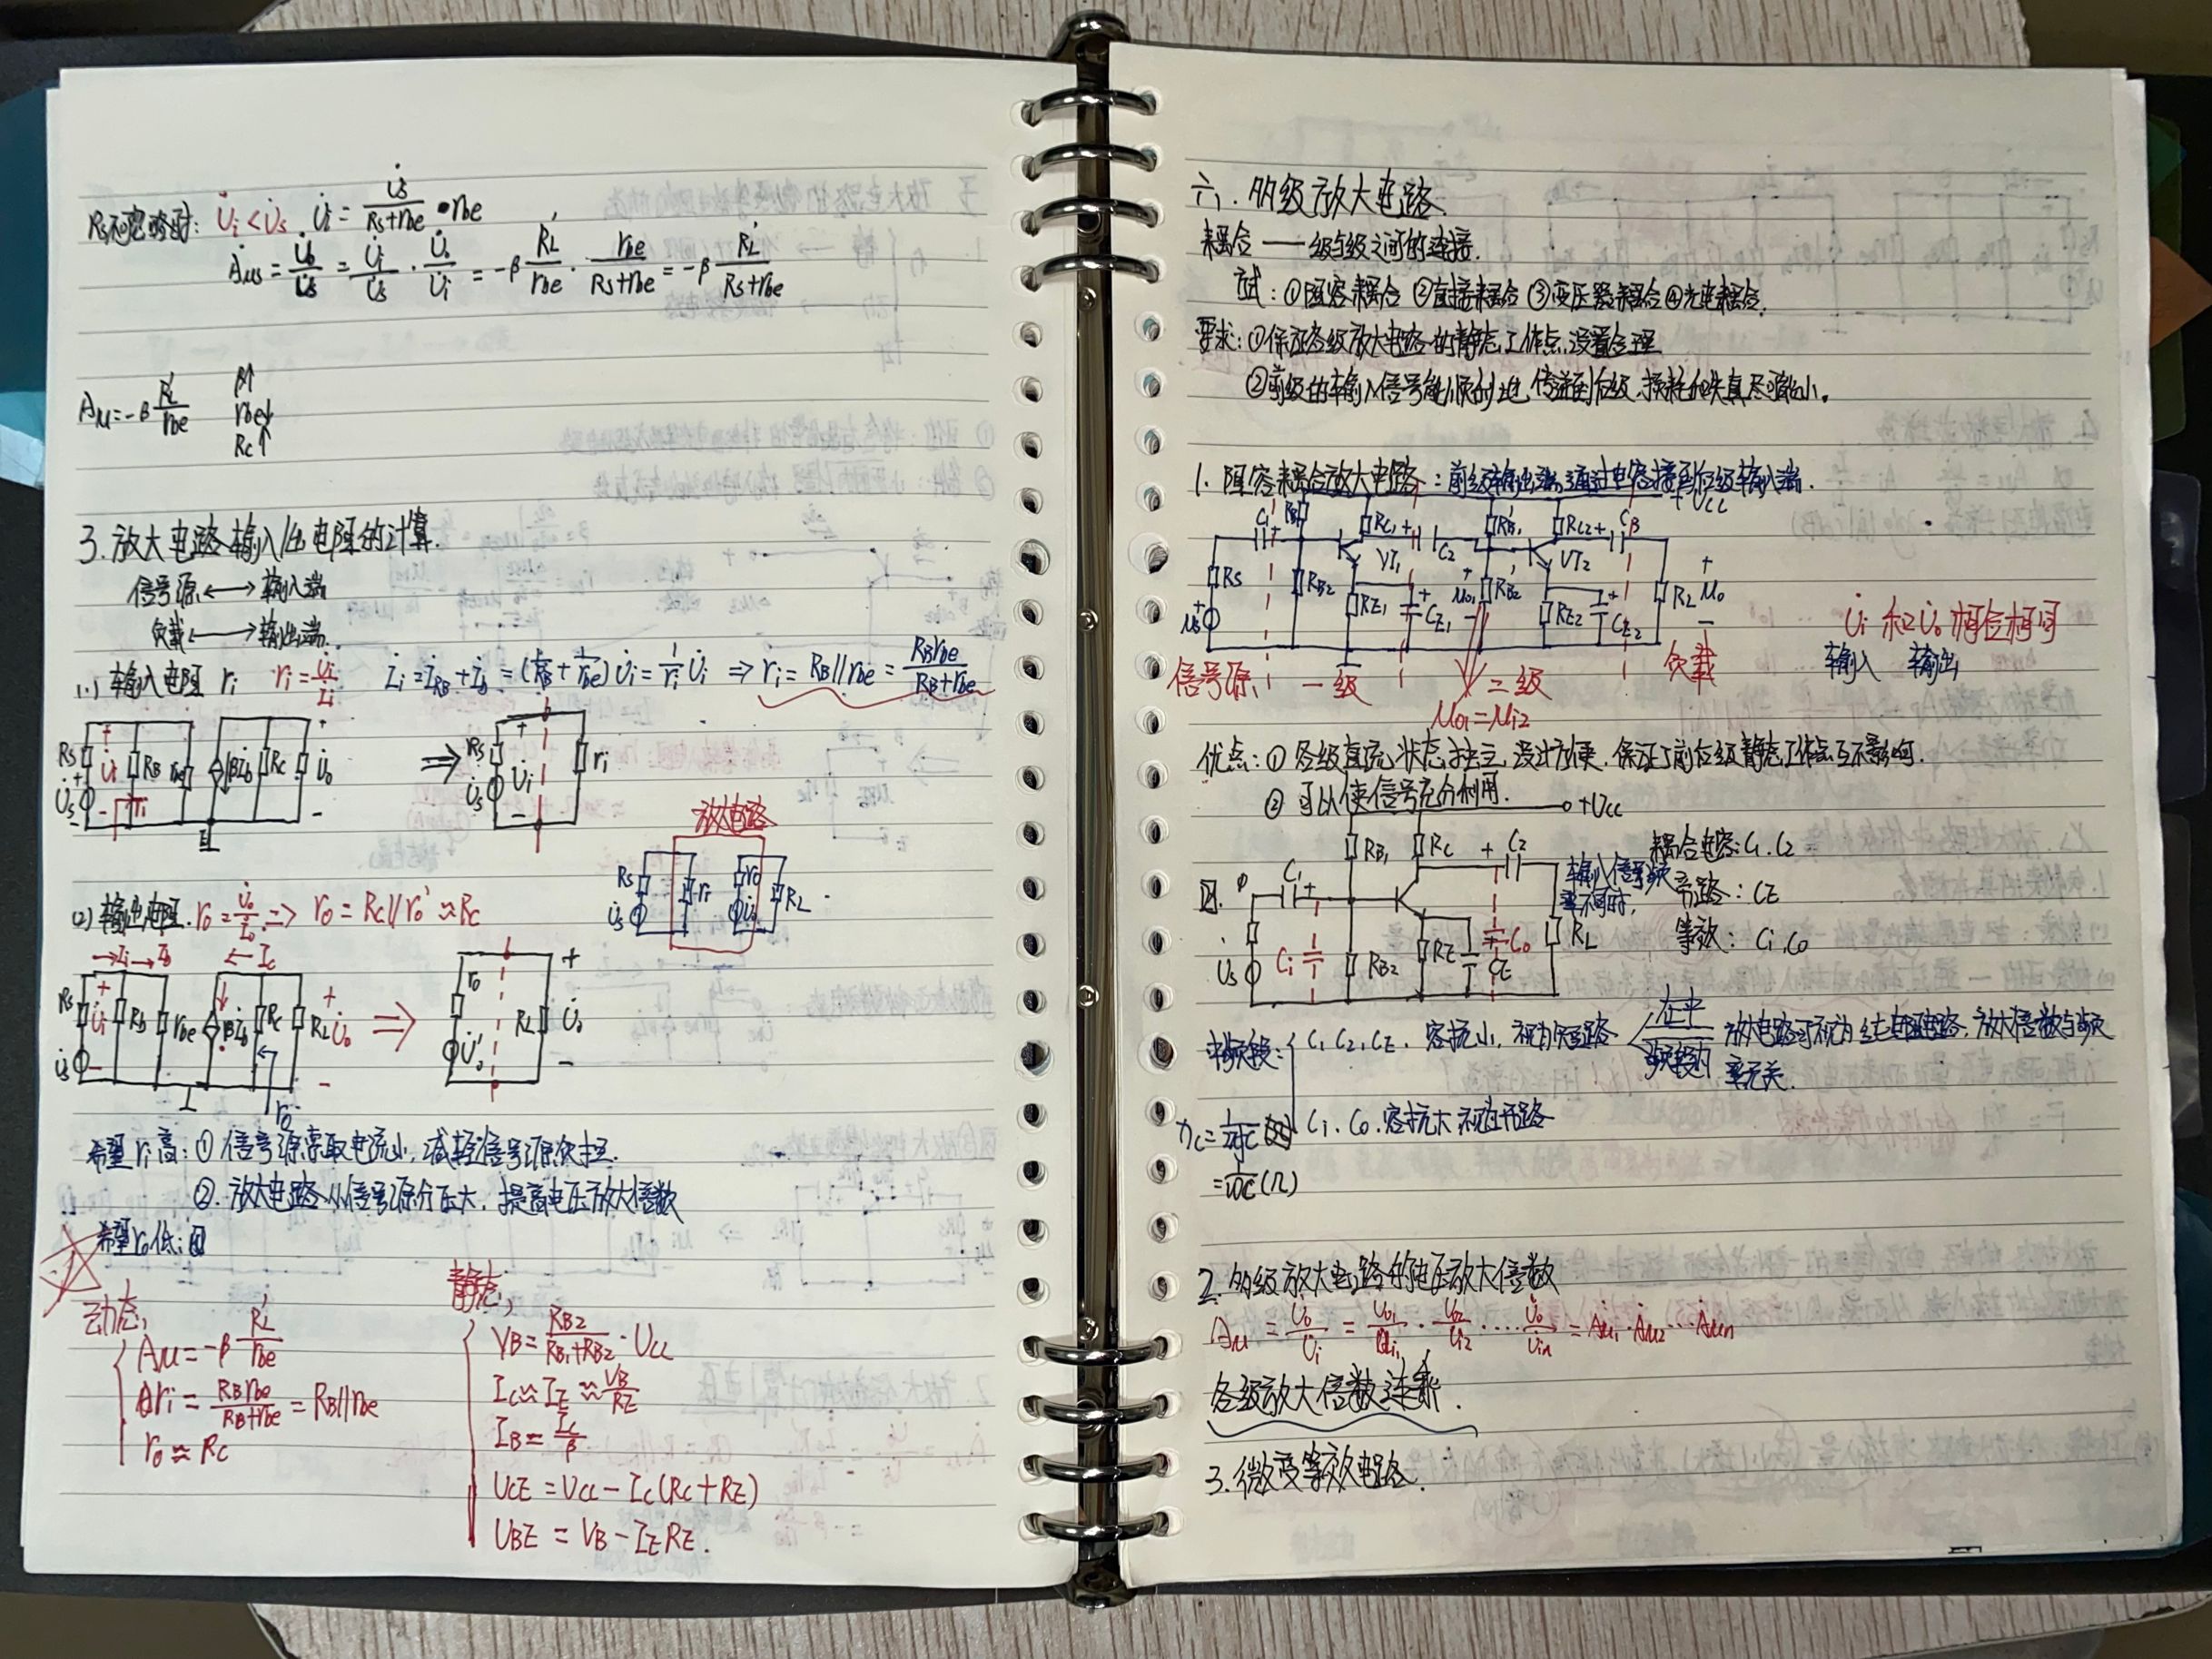 Rs不忽略时: U̇i < U̇s  U̇i = U̇s/(Rs+rbe) · rbe
Ȧus = U̇o/U̇s = U̇i/U̇s · U̇o/U̇i = -β R'L/rbe · rbe/(Rs+rbe) = -β R'L/(Rs+rbe)
Au = -β R'L/rbe  β↑
rbe↓
Rc↑
3. 放大电路输入/出电阻的计算.
信号源 ⟷ 输入端
负载 ⟷ 输出端.
(1) 输入电阻 ri  ri = U̇i/İi  İi = İRB + İb = (1/RB + 1/rbe) U̇i = 1/ri U̇i ⇒ ri = RB//rbe = RBrbe/(RB+rbe)
Rs U̇s + U̇i - ri RB rbe βİb Rc + U̇o - ⇒ Rs U̇s + U̇i - ri
放大电路
Rs U̇s ri ro RL
(2) 输出电阻. ro = U̇o/İo ⇒ ro = Rc//r'o ≈ Rc
→Ii →Ib ←Ic
Rs U̇s + U̇i - RB rbe βİb Rc RL + U̇o - ⇒ ro U̇'o RL + U̇o -
ro
希望ri高: ① 信号源索取电流小, 减轻信号源负担.
② 放大电路从信号源分压大, 提高电压放大倍数
希望ro低:
动态,
Au = -β R'L/rbe
ri = RBrbe/(RB+rbe) = RB//rbe
ro ≈ Rc
静态,
VB = RB2/(RB1+RB2) · Ucc
Ic ≈ IE ≈ VB/RE
IB = Ic/β
UCE = Ucc - Ic(Rc+RE)
UBE = VB - IERE.
六. 多级放大电路.
耦合 —— 级与级之间的连接.
方式: ①阻容耦合 ②直接耦合 ③变压器耦合 ④光电耦合.
要求: ①保证各级放大电路的静态工作点设置合理
②前级的输入信号能顺利地传递到后级, 损耗和失真尽可能小。
1. 阻容耦合放大电路: 前级输出端通过电容接到后级输入端.
+Ucc
C1 + RB1 Rc1 + C2 R'B1 Rc2 + CB
Rs us RB2 VT1 RE1 CE1 + uo1 - R'B2 VT2 RE2 CE2 RL + uo -
信号源 一级 二级 负载
uo1 = ui2
U̇i 和 U̇o 相位相同
输入 输出
优点: ① 各级直流状态独立, 设计方便, 保证了前后级静态工作点互不影响.
② 可以使信号充分利用.
+Ucc
RB1 Rc + C2
C1 + U̇s Ci RB2 RE CE Co RL
输入信号频率不同时,
耦合电容: C1. C2
旁路: CE
等效: Ci, Co
中频段: C1 C2, CE. 容抗小, 视为短路 在中频段内 放大电路可视为纯电阻电路, 放大倍数与频率无关.
Ci. Co. 容抗大 视为开路
= 1/ωC (Ω)
2. 多级放大电路的电压放大倍数
Au = U̇o/U̇i = U̇o1/U̇i1 · U̇o2/U̇i2 ···· U̇o/U̇in = Ȧu1 · Ȧu2 ··· Ȧun
各级放大倍数连乘.
3. 微变等效电路.